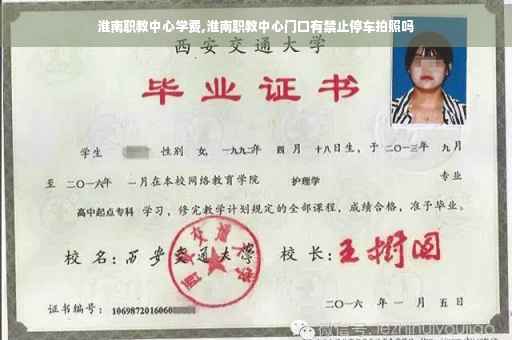 淮南职教中心学费,淮南职教中心门口有禁止停车拍照吗
西安交通大学
毕业证书
学生 性别 女, 一九九二年 四月 十八日生, 于二〇一三年 九月
至 二〇一六年 一月在本校网络教育学院 护理学 专业
高中起点专科 学习, 修完教学计划规定的全部课程, 成绩合格, 准予毕业。
校名: 西安交通大学 校长: 王树国
西安交通大学
证书编号: 1069872016060
二〇一六年 一月 五日
微信号: jiezhihuiyoujiao